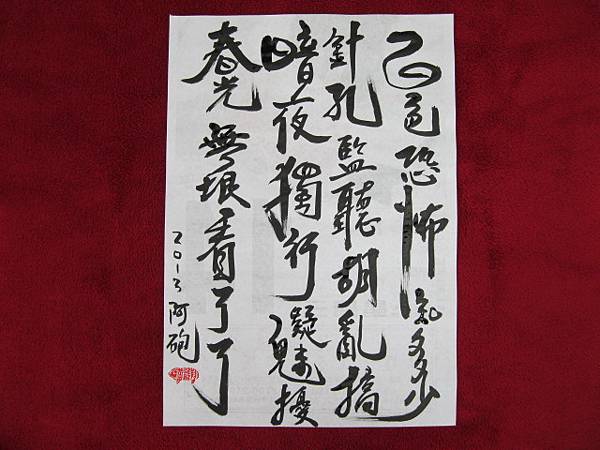 白色恐怖多少
針孔監聽胡亂搞
暗夜獨行疑魅擾
春光無垠看了了
2013阿砲